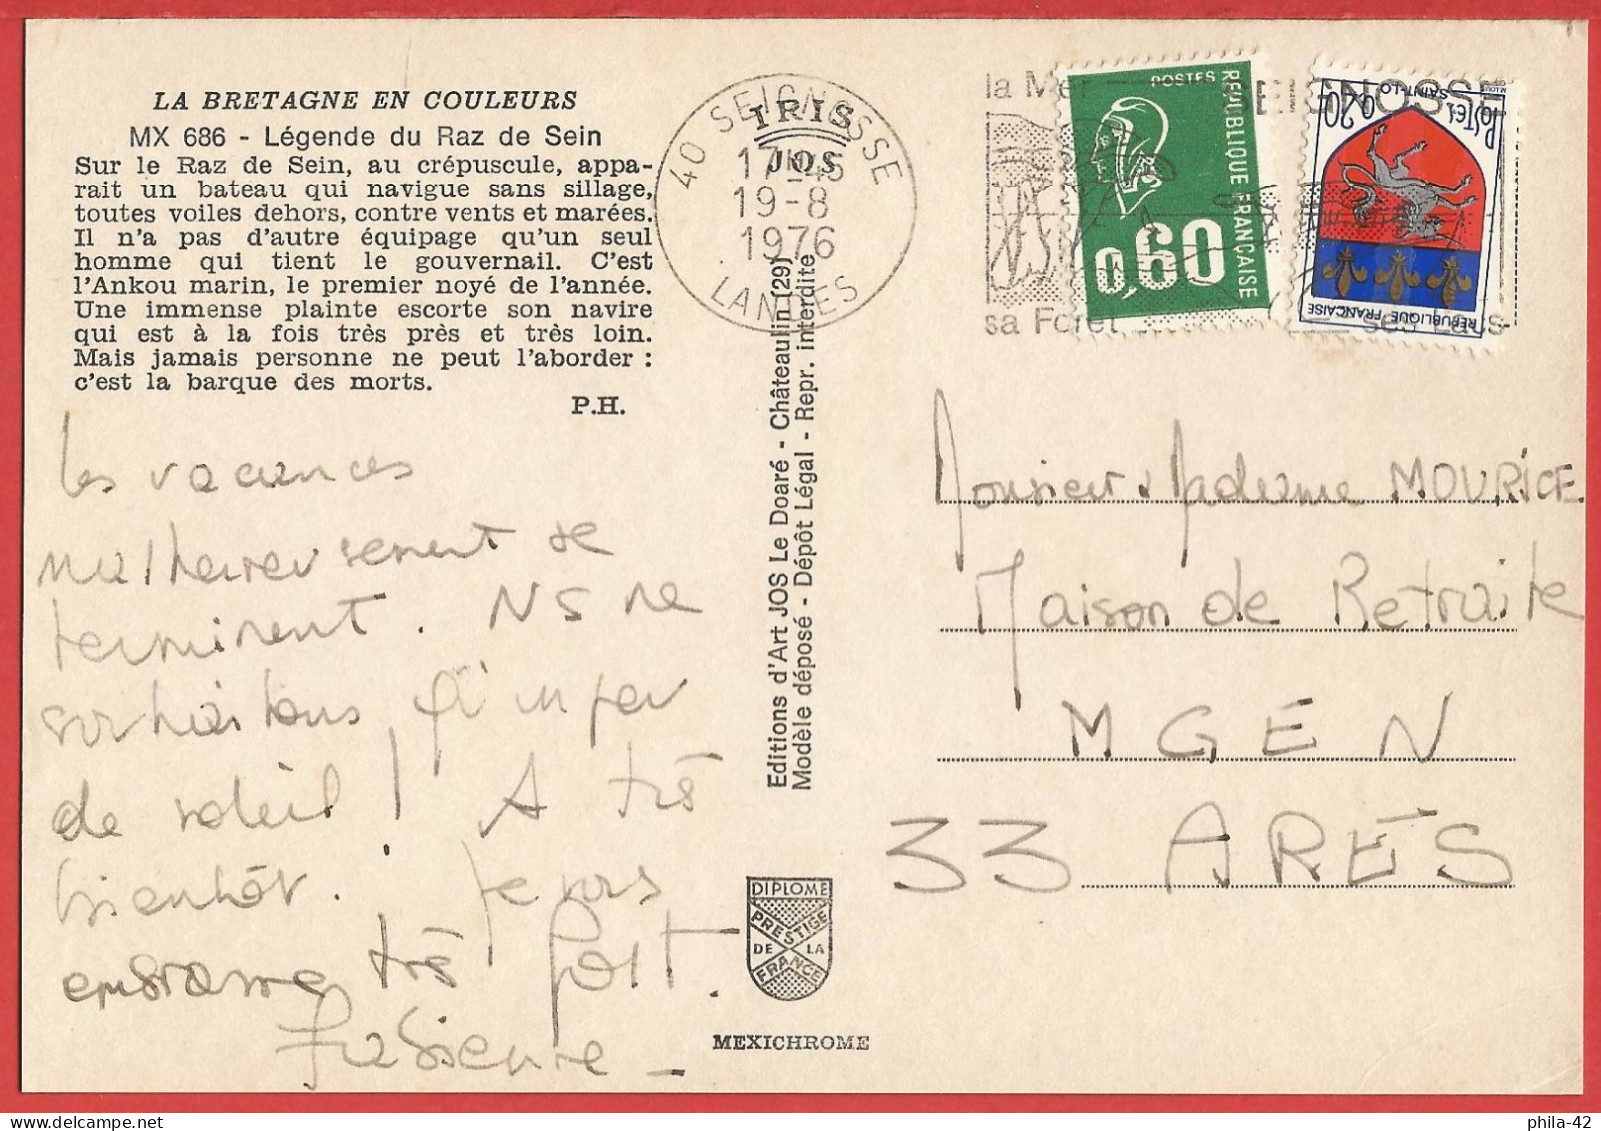 LA BRETAGNE EN COULEURS
MX 686 - Légende du Raz de Sein
Sur le Raz de Sein, au crépuscule, appa-
rait un bateau qui navigue sans sillage,
toutes voiles dehors, contre vents et marées.
Il n'a pas d'autre équipage qu'un seul
homme qui tient le gouvernail. C'est
l'Ankou marin, le premier noyé de l'année.
Une immense plainte escorte son navire
qui est à la fois très près et très loin.
Mais jamais personne ne peut l'aborder :
c'est la barque des morts.
P.H.
Les vacances
malheureusement se
terminent. NS ne
souhaitons qu'un peu
de soleil ! A très
bientôt. Je vous
embrasse très fort.
Fabienne
IRIS
JOS
40 SEIGNOSSE
17H45
19-8
1976
LANDES
Editions d'Art JOS Le Doaré - Châteaulin (29)
Modèle déposé - Dépôt Légal - Repr. interdite
DIPLOME
PRESTIGE
DE LA
FRANCE
MEXICHROME
la Mer
SEIGNOSSE
sa Forêt
ses Lacs
POSTES
REPUBLIQUE FRANÇAISE
0,60
SAINT-LO
POSTES 0,20
RÉPUBLIQUE FRANÇAISE
Monsieur & Madame MOURICE
Maison de Retraite
MGEN
33 ARÈS
phila-42